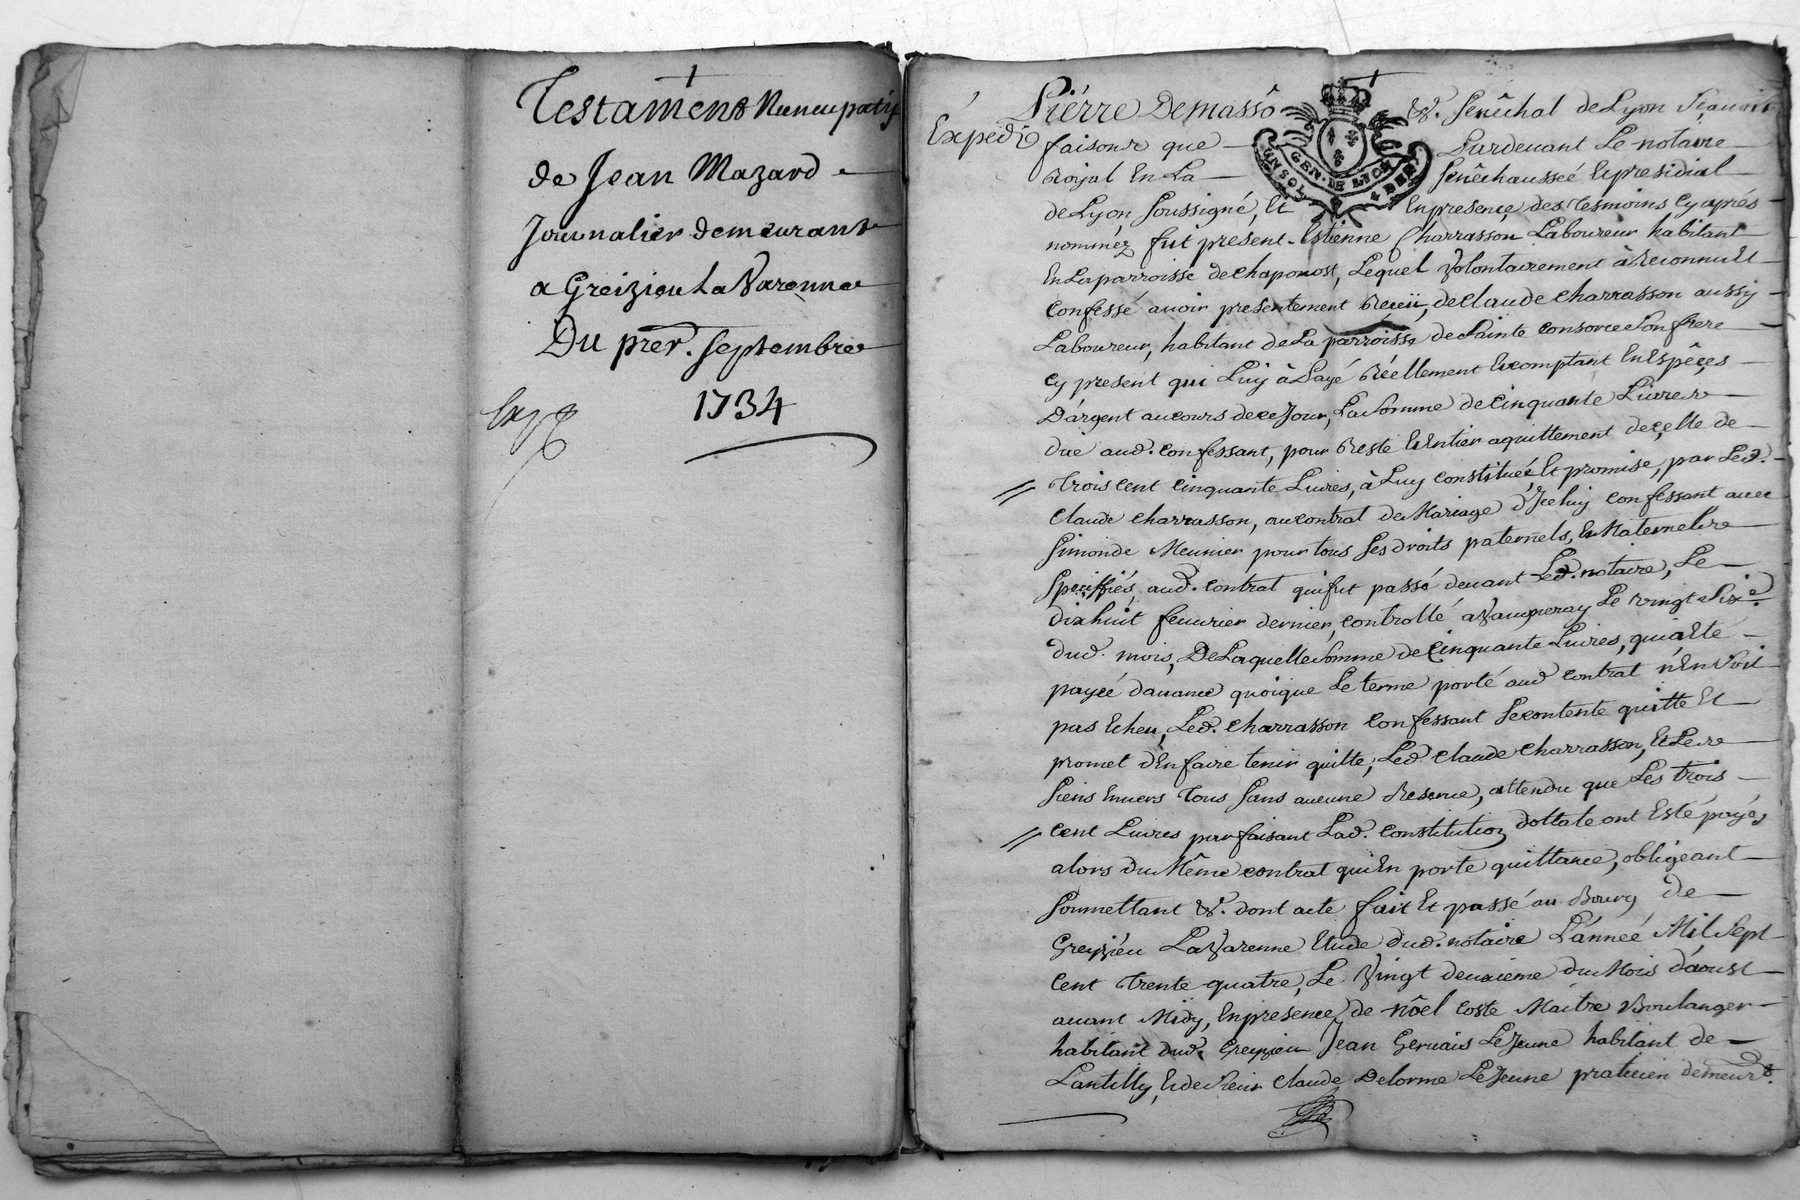 Testament Nuncupatif
de Jean Mazard
Journalier demeurant
a Greizieu La Varenne
Du prer. septembre
1734
Expedié
Pierre Demasso &. senêchal de Lyon sçavoir
faisons que Pardevant Le notaire
Royal En La senêchausseé & presidial
de Lyon soussigné, Et En presence des tesmoins cy aprés
nommez fut present Estienne Charrasson Laboureur habitant
En La parroisse de chaponost, Lequel volontairement à reconnu Et
confessé avoir presentement Receü, de Claude charrasson aussy
Laboureur, habitant de La parroisse de sainte consorce son frere
cy present qui Luy à Payé Réellement & comptant En Espêces
D'argent au cours de ce Jour, La somme de cinquante Livres
düe aud. confessant, pour Reste & Entier aquittement de celle de
trois cent cinquante Livres, à Luy constituée Et promise, par Led.
Claude charrasson, au contrat de Mariage d'Jceluy confessant avec
simonde Meunier pour tous ses droits paternels, & Maternels
speciffiés, aud. contrat qui fut passé devant Led. notaire, Le
dixhuit fevrier dernier, controllé a Vaugneray Le vingt sixe.
dud. mois, De Laquelle somme de Cinquante Livres, qui a Eté
payeé d'avance quoique Le terme porté aud contrat n'En soit
pas Echeu, Led. charrasson confessant se contente quitte Et
promet d'En faire tenir quitte, Led. Claude charrasson, Et Les
siens Envers tous sans aucune Reserve, attendu que Les trois
cent Livres parfaisant Lad. constitution dottale ont Esté payés
alors du Même contrat qui En porte quittance, obligeant
soumettant &. dont acte fait Et passé au Bourg de
Greyzieu La Varenne Etude dud. notaire L'anneé Mil sept
cent trente quatre, Le vingt deuxieme du Mois d'aoust
avant Midy, En presence de nôel Coste Maître Boulanger
habitant dud. Greyzieu Jean Gervais Le Jeune habitant de
Lantilly, & de sieur Claude Delorme Le Jeune praticien demeurt.